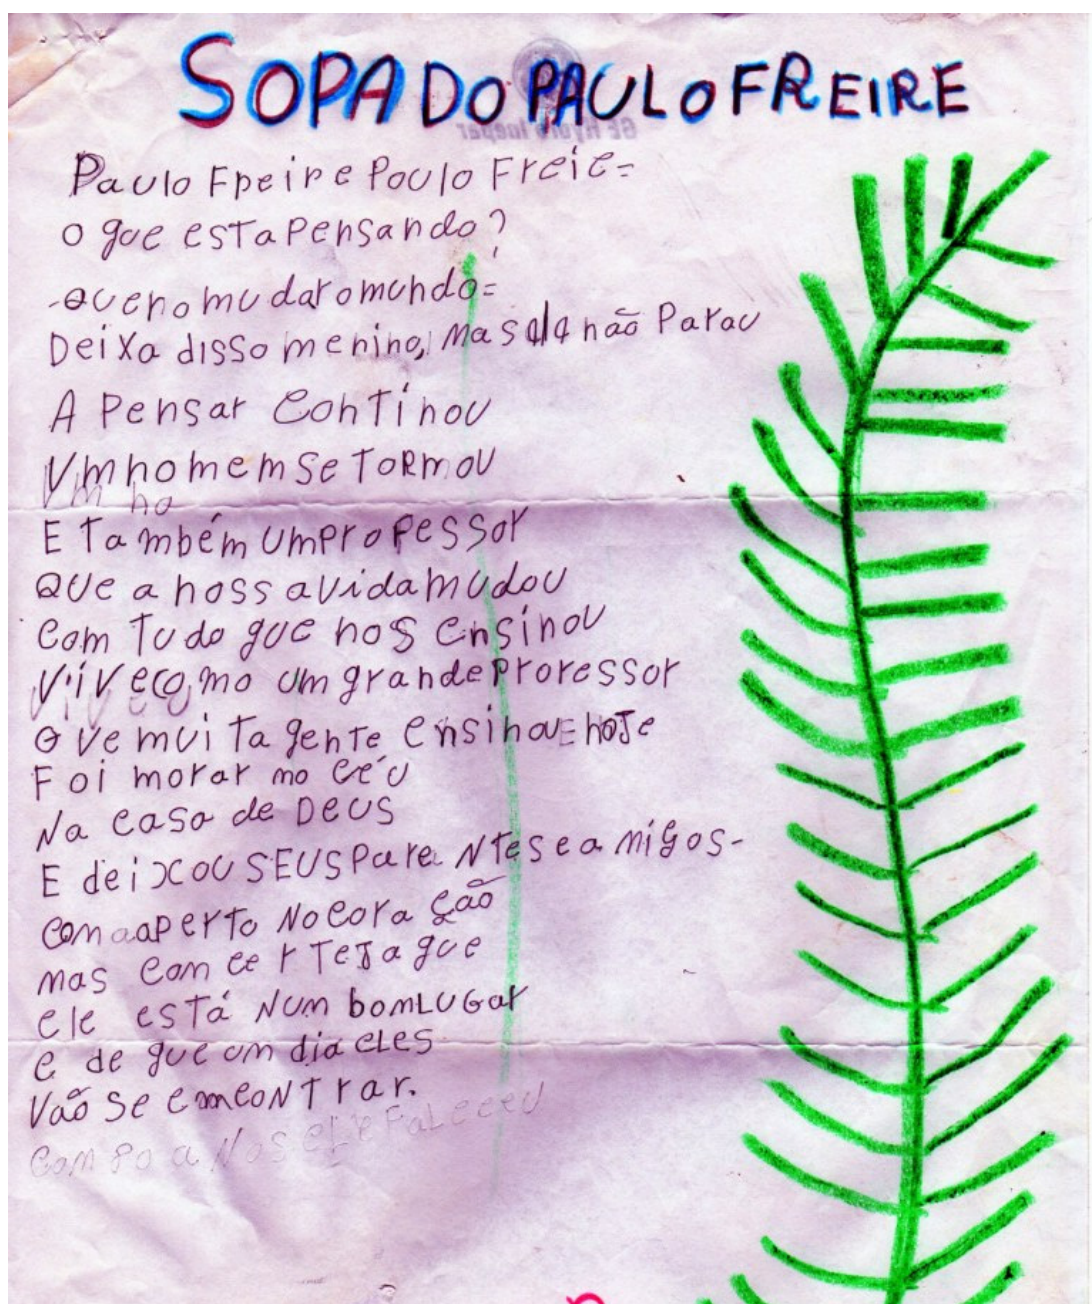 SOPA DO PAULO FREIRE
Paulo Freire Poulo Freie-
o que esta pensando?
-quero mudar o mundo=
Deixa disso menino, mas ela não Parau
A Pensar Continou
Um homem se TORMOU
Um ho
E Também um professor
Que a nossa vida mudou
Com Tudo que nos ensinou
Vive como um grande professor
Que muita gente ensinou E hoje
Foi morar no céu
Na casa de Deus
E deixou SEUS Parentes e amigos-
Com aperto No coração
mas com certeja que
ele está Num bom LUGar
e de que um dia eles
Vão se emcontrar.
Com 80 a Nos ELE FaLeceu